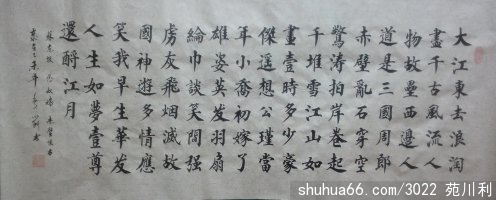 大江東去浪淘
盡千古風流人
物故壘西邊人
道是三國周郎
赤壁亂石穿空
驚濤拍岸卷起
千堆雪江山如
畫壹時多少豪
傑遥想公瑾當
年小喬初嫁了
雄姿英发羽扇
綸巾談笑間强
虜灰飛烟滅故
國神遊多情應
笑我早生華发
人生如夢壹尊
還酹江月
shuhua66.com/3022 苑川利